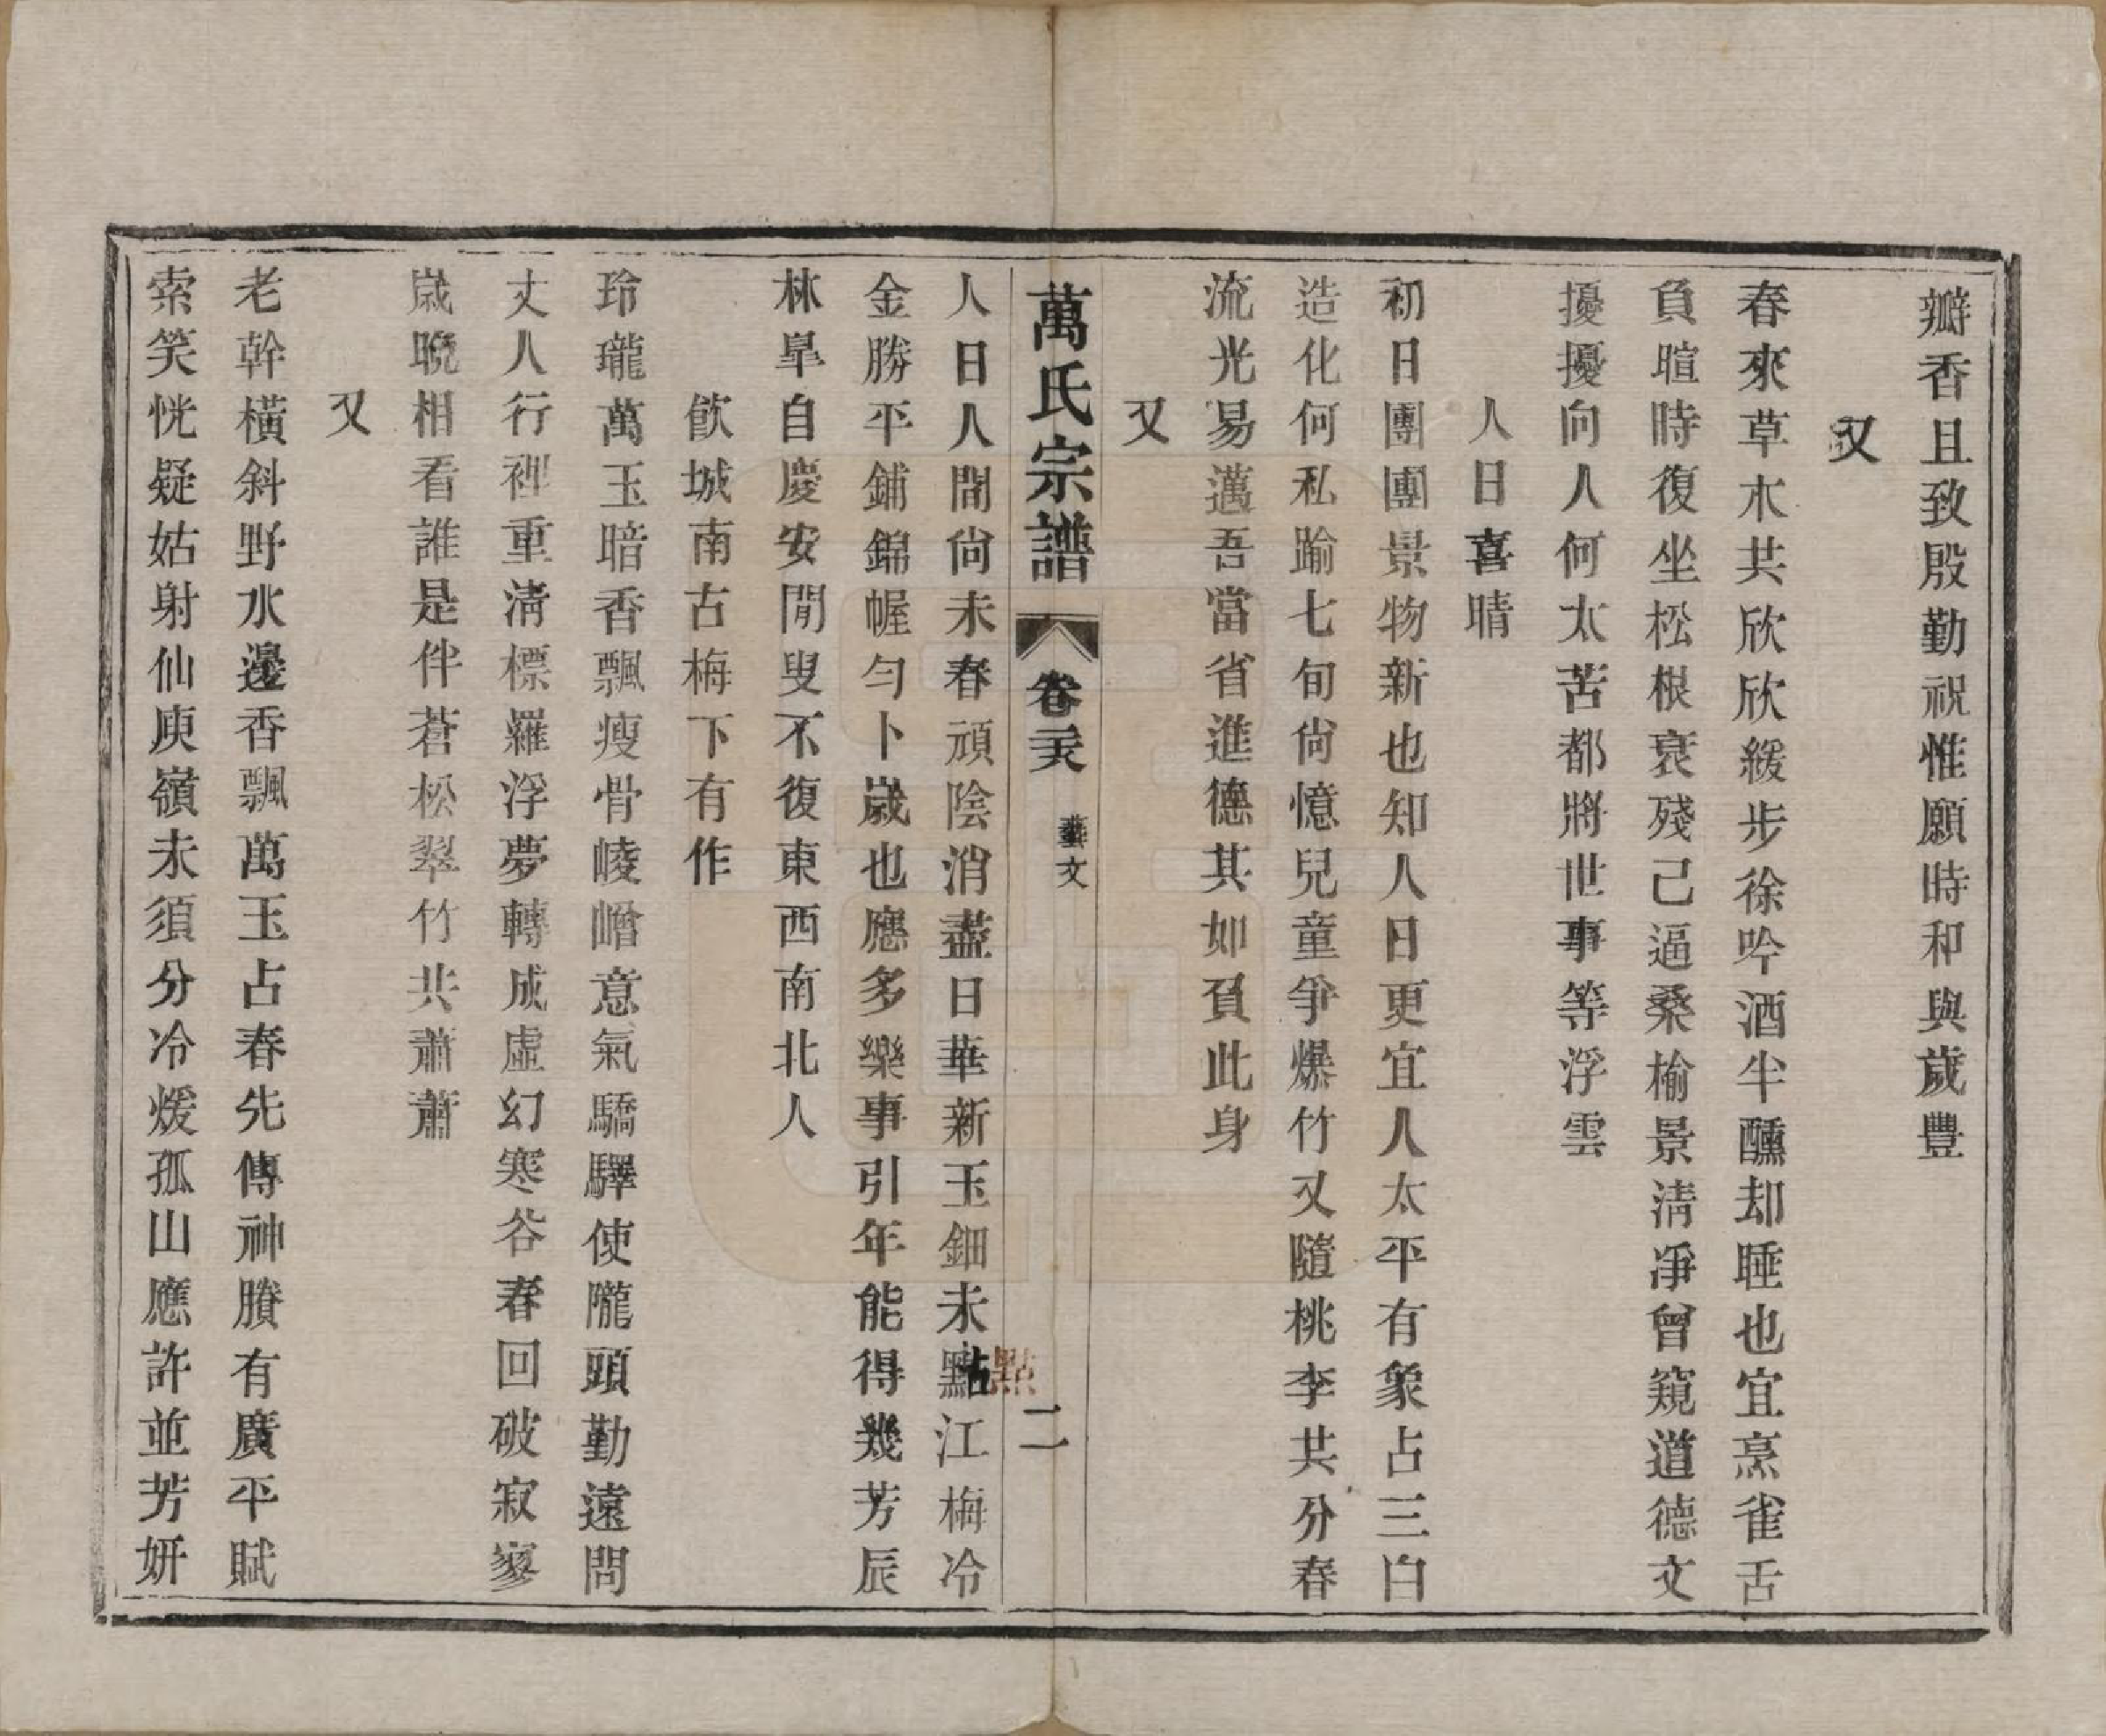 瓣香且致殷勤祝惟願時和與歲豐
又
春來草木共欣欣緩步徐吟酒半醺却睡也宜烹雀舌
負暄時復坐松根衰殘己逼桑榆景清淨曾窺道德文
擾擾向人何太苦都將世事等浮雲
人日喜晴
初日團團景物新也知人日更宜人太平有象占三白
造化何私踰七旬尙憶兒童爭爆竹又隨桃李共分春
流光易邁吾當省進德其如負此身
又
萬氏宗譜
卷二十六
藝文
二
人日人間尙未春頑陰消盡日華新玉鈿未點江梅冷
點
金勝平鋪錦幄勻卜歲也應多樂事引年能得幾芳辰
林臯自慶安閒叟不復東西南北人
飮城南古梅下有作
玲瓏萬玉暗香飄瘦骨崚嶒意氣驕驛使隴頭勤遠問
丈人行裡重淸標羅浮夢轉成虛幻寒谷春回破寂寥
歲晚相看誰是伴蒼松翠竹共蕭蕭
又
老幹橫斜野水邊香飄萬玉占春先傳神賸有廣平賦
索笑恍疑姑射仙庾嶺未須分冷煖孤山應許並芳妍